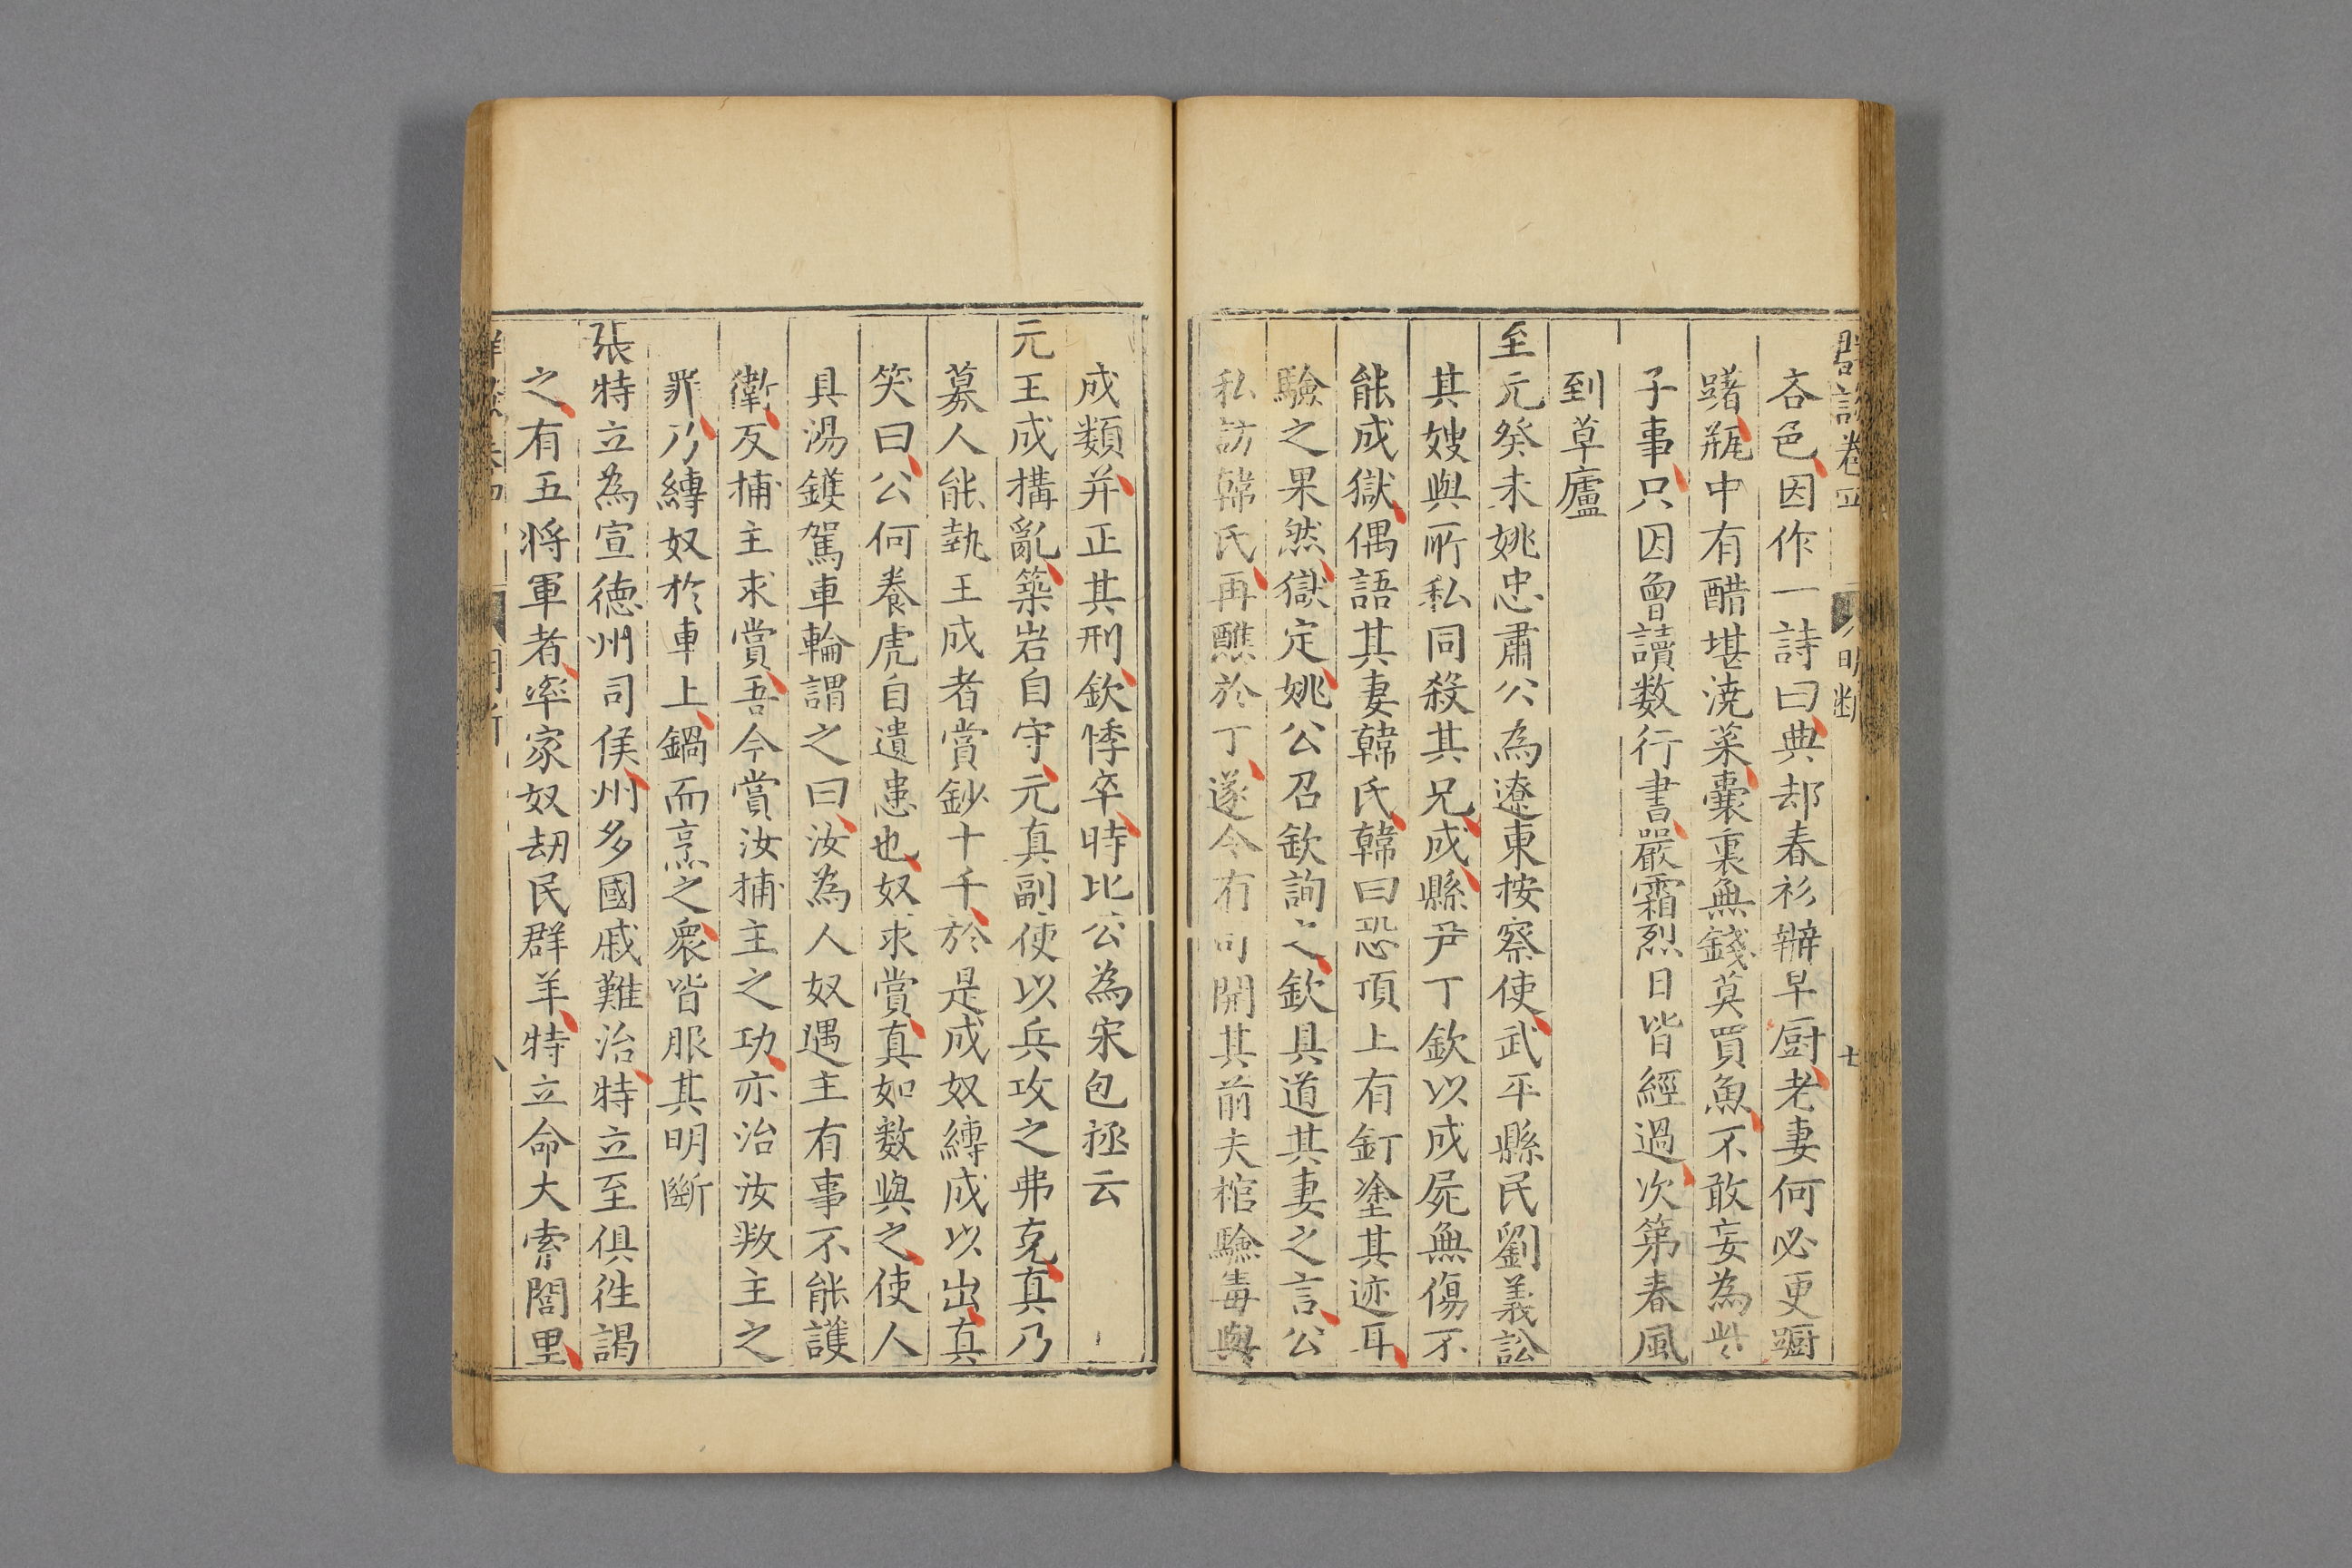 吝色因作一詩曰典却春衫辦早厨老妻何必更躕
躇瓶中有醋堪澆菜囊裏無錢莫買魚不敢妄為些
子事只因曾讀数行書嚴霜烈日皆經過次第春風
到草廬
至元癸未姚忠肅公為遼東按察使武平縣民劉義訟
其嫂與所私同殺其兄成縣尹丁欽以成屍無傷不
能成獄偶語其妻韓氏韓曰恐頂上有釘塗其迹耳
驗之果然獄定姚公召欽詢之欽具道其妻之言公
私訪韓氏再醮於丁遂令有司開其前夫棺驗毒與
成類并正其刑欽悸卒時比公為宋包拯云
元王成構亂築岩自守元真副使以兵攻之弗克真乃
募人能執王成者賞鈔十千於是成奴縛成以出真
笑曰公何養虎自遺患也奴求賞真如数與之使人
具湯鑊駕車輪謂之曰汝為人奴遇主有事不能護
衛反捕主求賞吾今賞汝捕主之功亦治汝叛主之
罪乃縛奴於車上鍋而烹之衆皆服其明斷
張特立為宣德州司侯州多國戚難治特立至俱徃謁
之有五将軍者率家奴刼民群羊特立命大索閭里